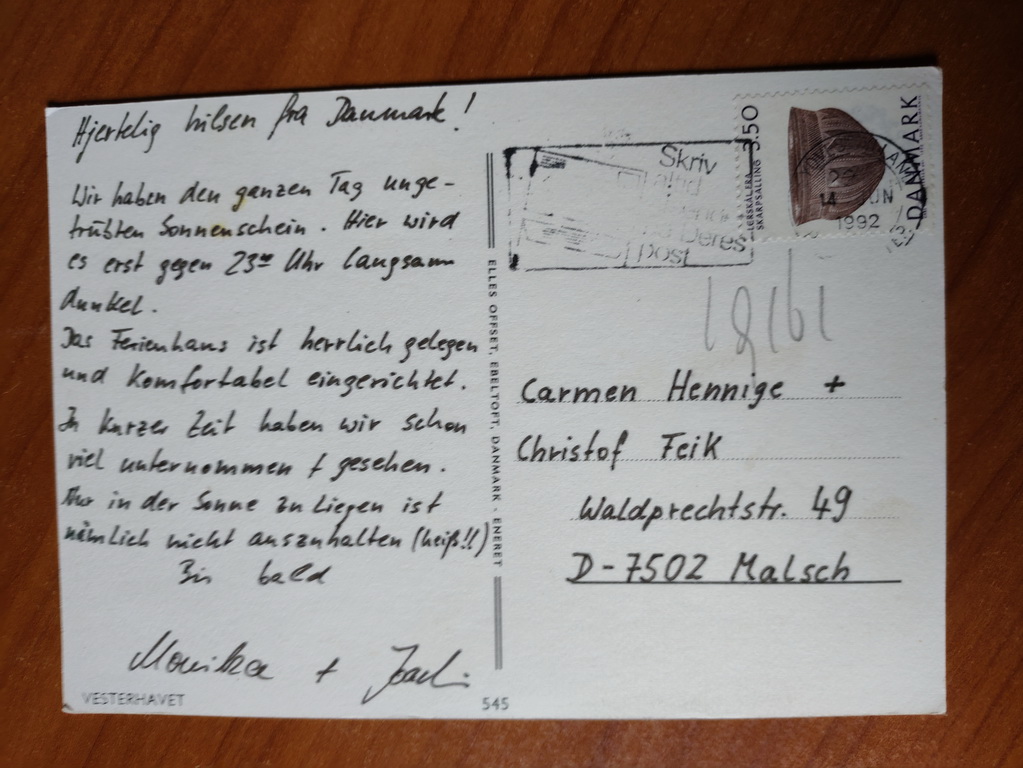 Hjertelig hilsen fra Danmark!
Wir haben den ganzen Tag unge-
trübten Sonnenschein. Hier wird
es erst gegen 23⁰⁰ Uhr langsam
dunkel.
Das Ferienhaus ist herrlich gelegen
und komfortabel eingerichtet.
In kurzer Zeit haben wir schon
viel unternommen + gesehen.
Nur in der Sonne zu liegen ist
nämlich nicht auszuhalten (heiß!!)
Bis bald
Monika +
VESTERHAVET
545
ELLES OFFSET, EBELTOFT, DANMARK - ENERET
Skriv
altid
Deres
post
3.50
LERSKÅL FRA
SKARPSALLING
DANMARK
14
1992
Carmen Hennige +
Christof Feik
Waldprechtstr. 49
D-7502 Malsch